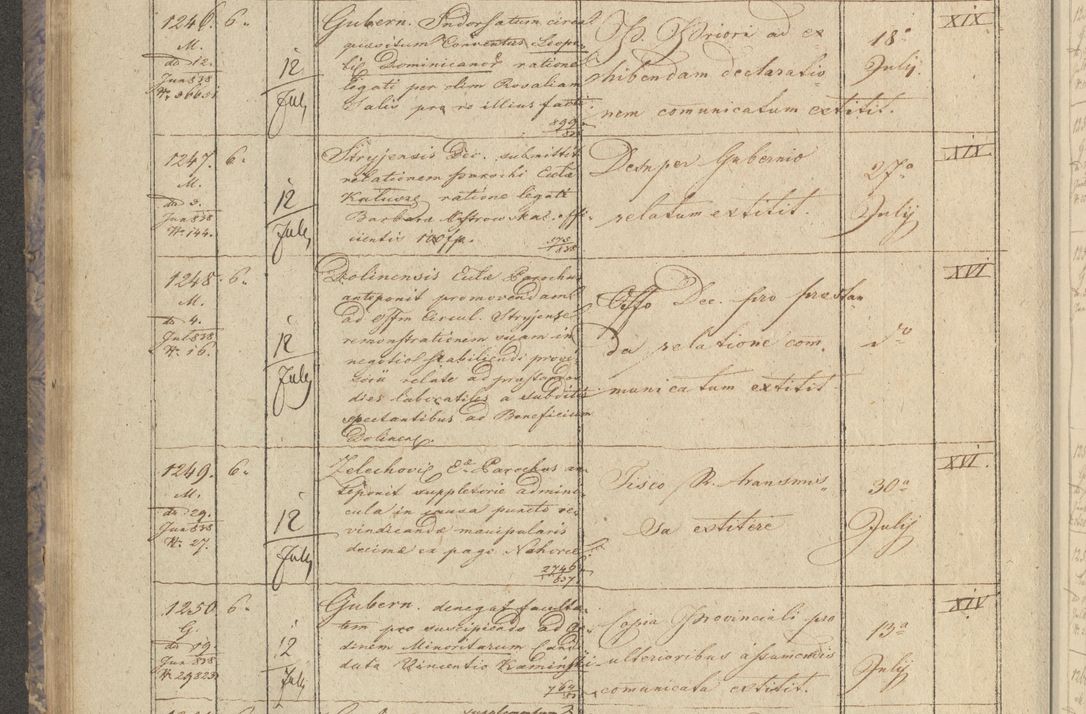 1246. 6.
M.
do 12.
Jun 838
12
July
Gubern. Indorsatum circa
quaesitum Conventus Leopo-
Dominicanor ratione
legati per olim Rosaliam
Salis pro re illius facti
899
838
P. Priori ad ex
hibendam declaratio
nem comunicatum extitit.
18a
July
XIX
1247. 6.
M.
do 3.
Jun 838
N. 144.
12
July
Stryjensis Dec. submittit
relationem Parochi Cutae
Kałusz ratione legati
Barbara offi-
cientis 100 fr.
575
838
Desuper Gubernio
relatum extitit.
27a
July
XIX
1248. 6.
M.
do 4.
Jul 838
N. 16.
12
July
Dolinensis Cutae Parochus
anteponit promovendam
ad Offm Circul. Stryjense
remonstrationem suam in
negotio stabiliendi provi-
relate ad praestan
dies laboratiles a subditis
spectantibus ad Beneficium
Dolinens.
Offo Dec. pro praestan
da relatione com.
municatum extitit
XVI
1249. 6.
M.
do 29.
Jun 838
N. 27.
12
July
Zelechovie Parochus an
teponit suppletorie admini
cula in causa puncto re-
vindicandae manipularis
decimae ex pago Nahorce
2746
837
Fisco R. transmis
sa extitere
30a
July
XVI.
1250 6.
G.
do 19.
Jun 838
N. 29323
12
July
Gubern. denegat faculta
tem pro suscipiendo ad Or-
dinem Minoritarum Candi
data Vincentio Kamiński
762
Copia Provinciali pro
ulterioribus assumendis
comunicata extitit.
13a
July
XIV